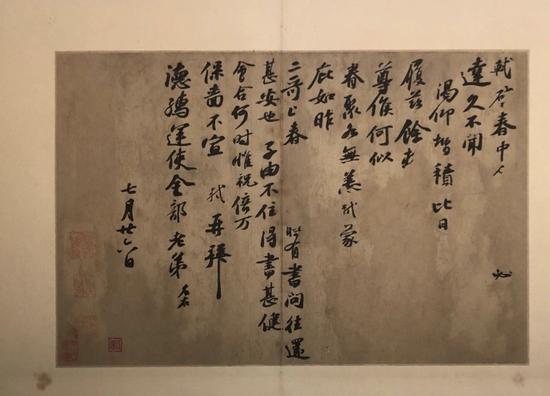 軾啓春中 必
達久不聞
渴仰增積比日
履茲餘
尊候何似
眷聚各無恙軾蒙
庇如昨
二哥上春 時有書問往還
甚安也子由不住得書甚健
會合何時惟祝倍万
保嗇不宣軾再拜
德孺運使金部老弟左右
七月廿六日